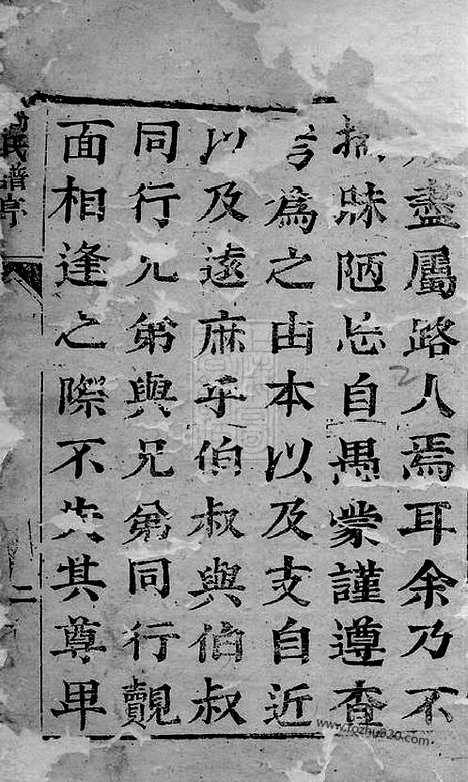 盡屬路人焉耳余乃不
揣昧陋忘自愚蒙謹遵查
言為之由本以及支自近
以及遠庥乎伯叔與伯叔
同行兄弟與兄弟同行覿
面相逢之際不失其尊卑
氏譜序
二
2
www.fozhu920.com